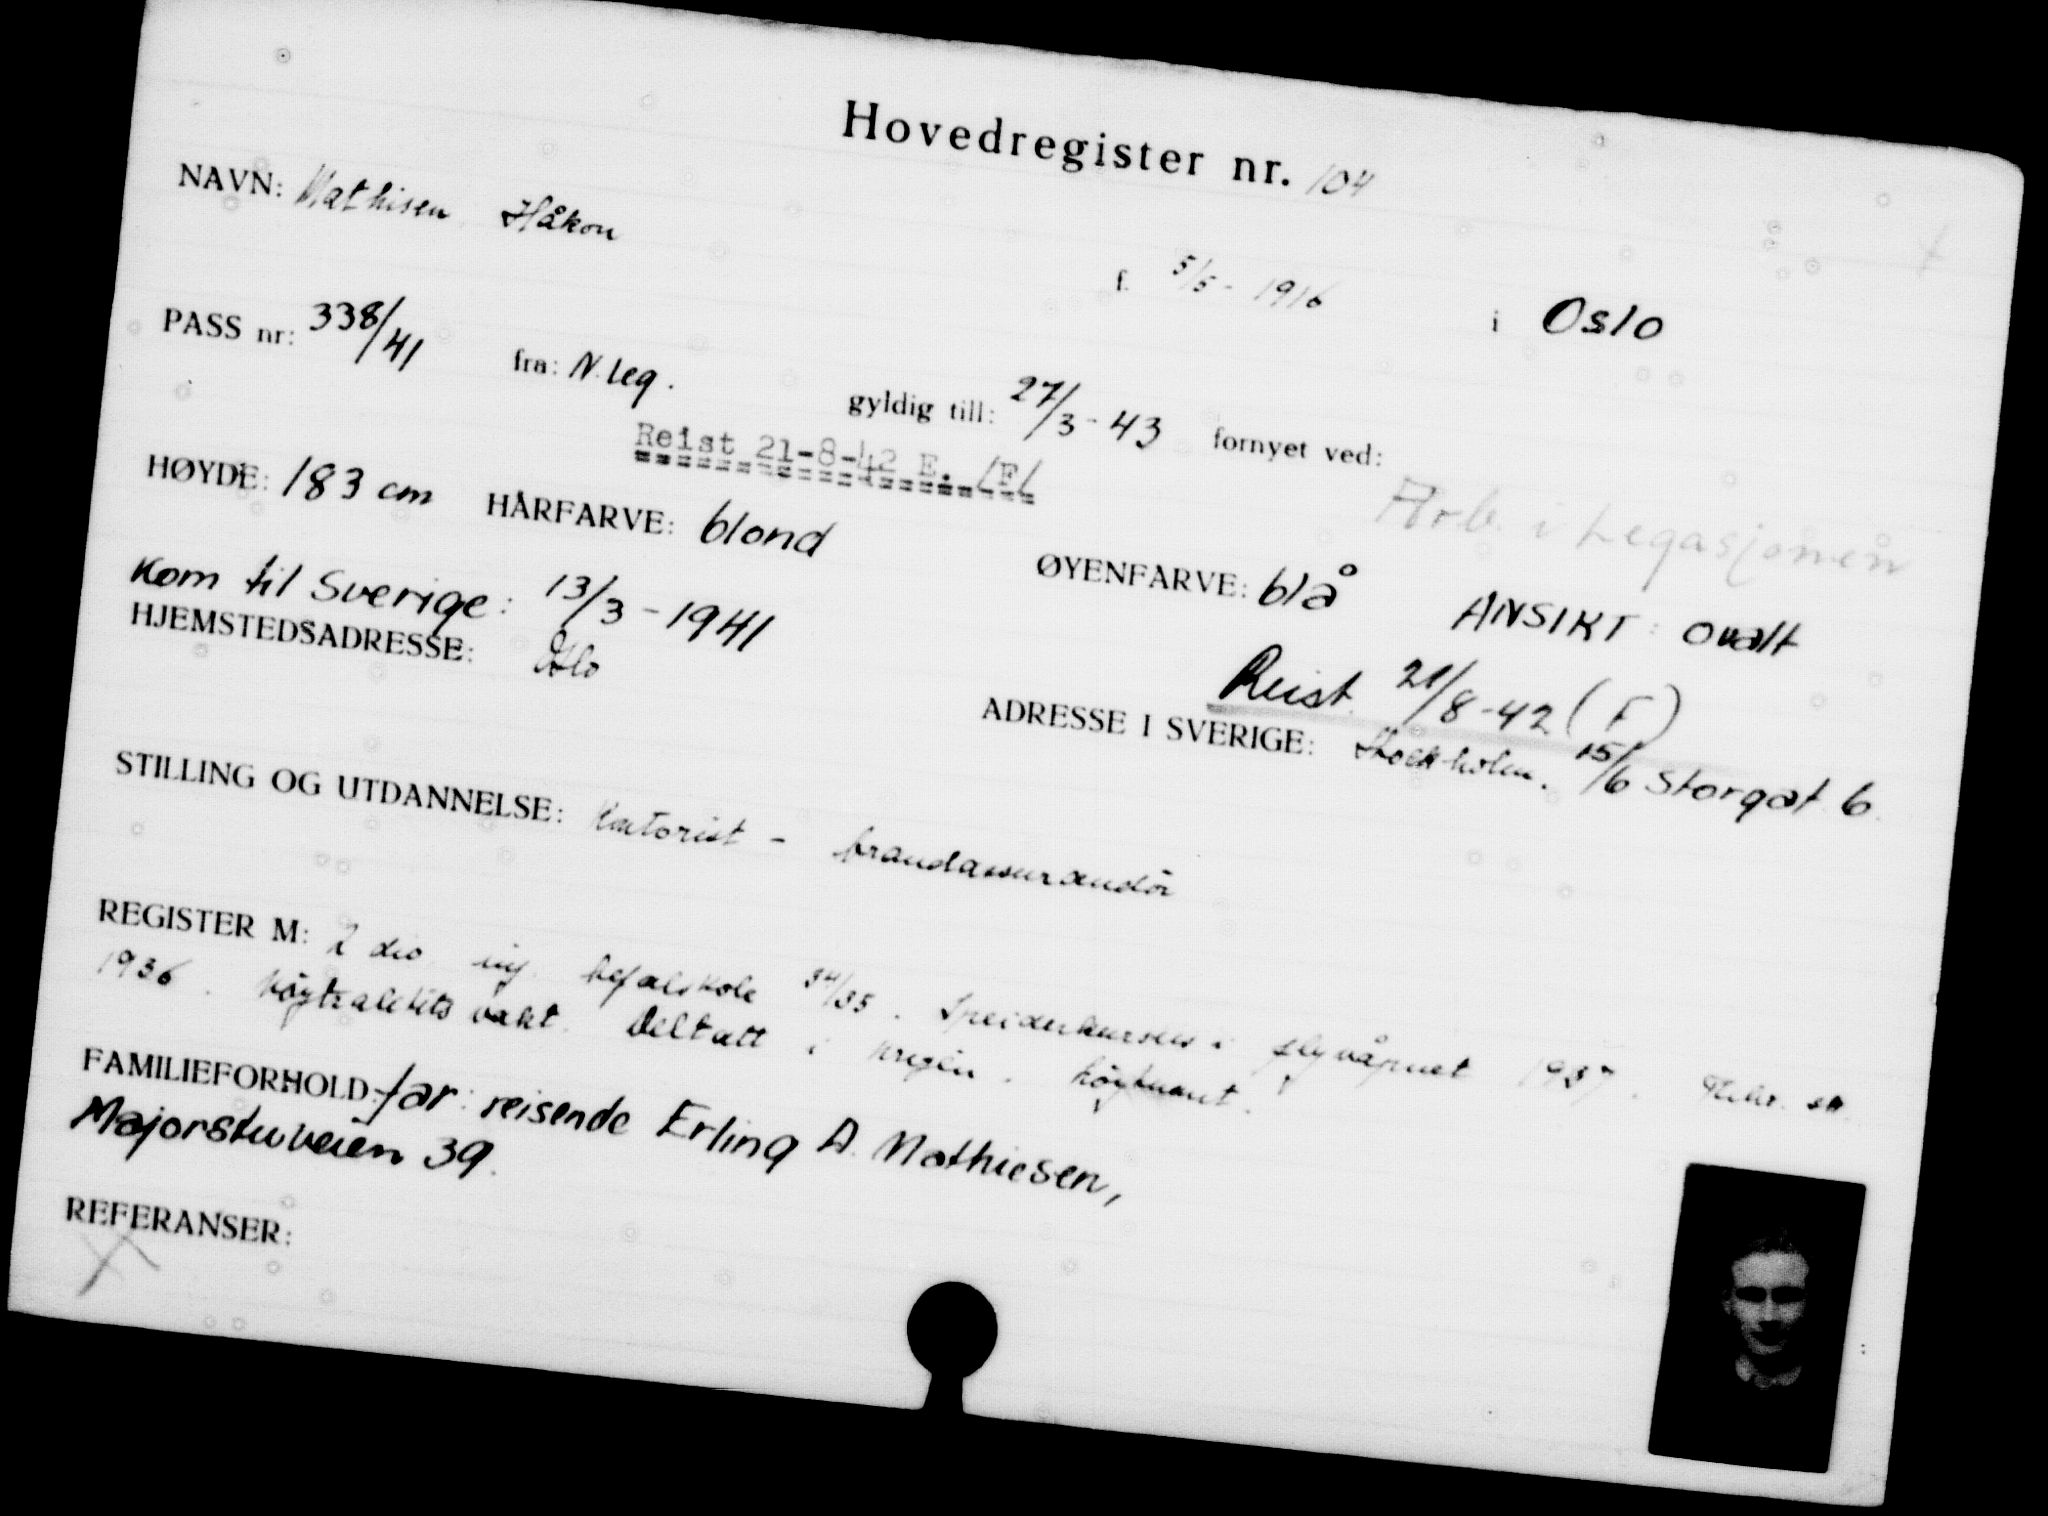 Hovedregister nr. 104
NAVN: Mathisen Håkon
f. 5/5 - 1916 i Oslo
PASS nr: 338/41 fra: N. Leg. gyldig till: 27/3 - 43 fornyet ved:
Reist 21-8-42 E. /F/
Arb. i Legasjonen
HØYDE: 183 cm HÅRFARVE: blond ØYENFARVE: blå ANSIKT: ovalt
Kom til Sverige: 13/3 - 1941
Reist. 21/8-42 (F)
HJEMSTEDSADRESSE: Oslo ADRESSE I SVERIGE: Stockholm. 15/6 Storgat. 6.
STILLING OG UTDANNELSE: Kontorist - brandassurandör
REGISTER M: 2 div. ing. befalskole 34/35. Speiderkursus i flyvåpnet 1937.
1936. Nöytralitets vakt. Deltatt i krigen.
FAMILIEFORHOLD: far: reisende Erling A. Mathiesen,
Majorstuveien 39.
REFERANSER: